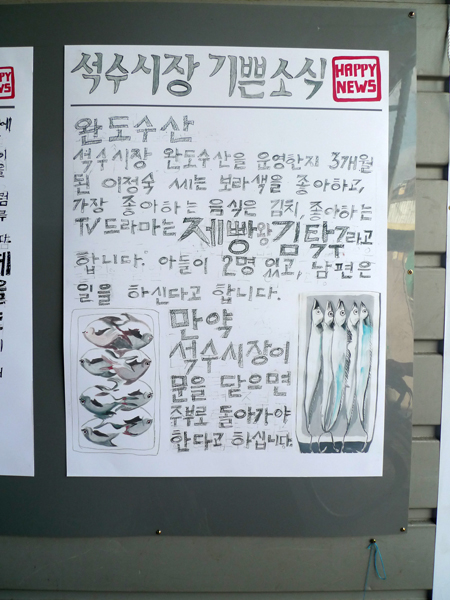 석수시장 기쁜소식 HAPPY NEWS
완도수산
석수시장 완도수산을 운영한지 3개월
된 이정숙 씨는 보라색을 좋아하고,
가장 좋아하는 음식은 김치, 좋아하는
TV드라마는 제빵왕 김탁구라고
합니다. 아들이 2명 있고, 남편은
일을 하신다고 합니다.
만약
석수시장이
문을 닫으면
주부로 돌아가야
한다고 하십니다.